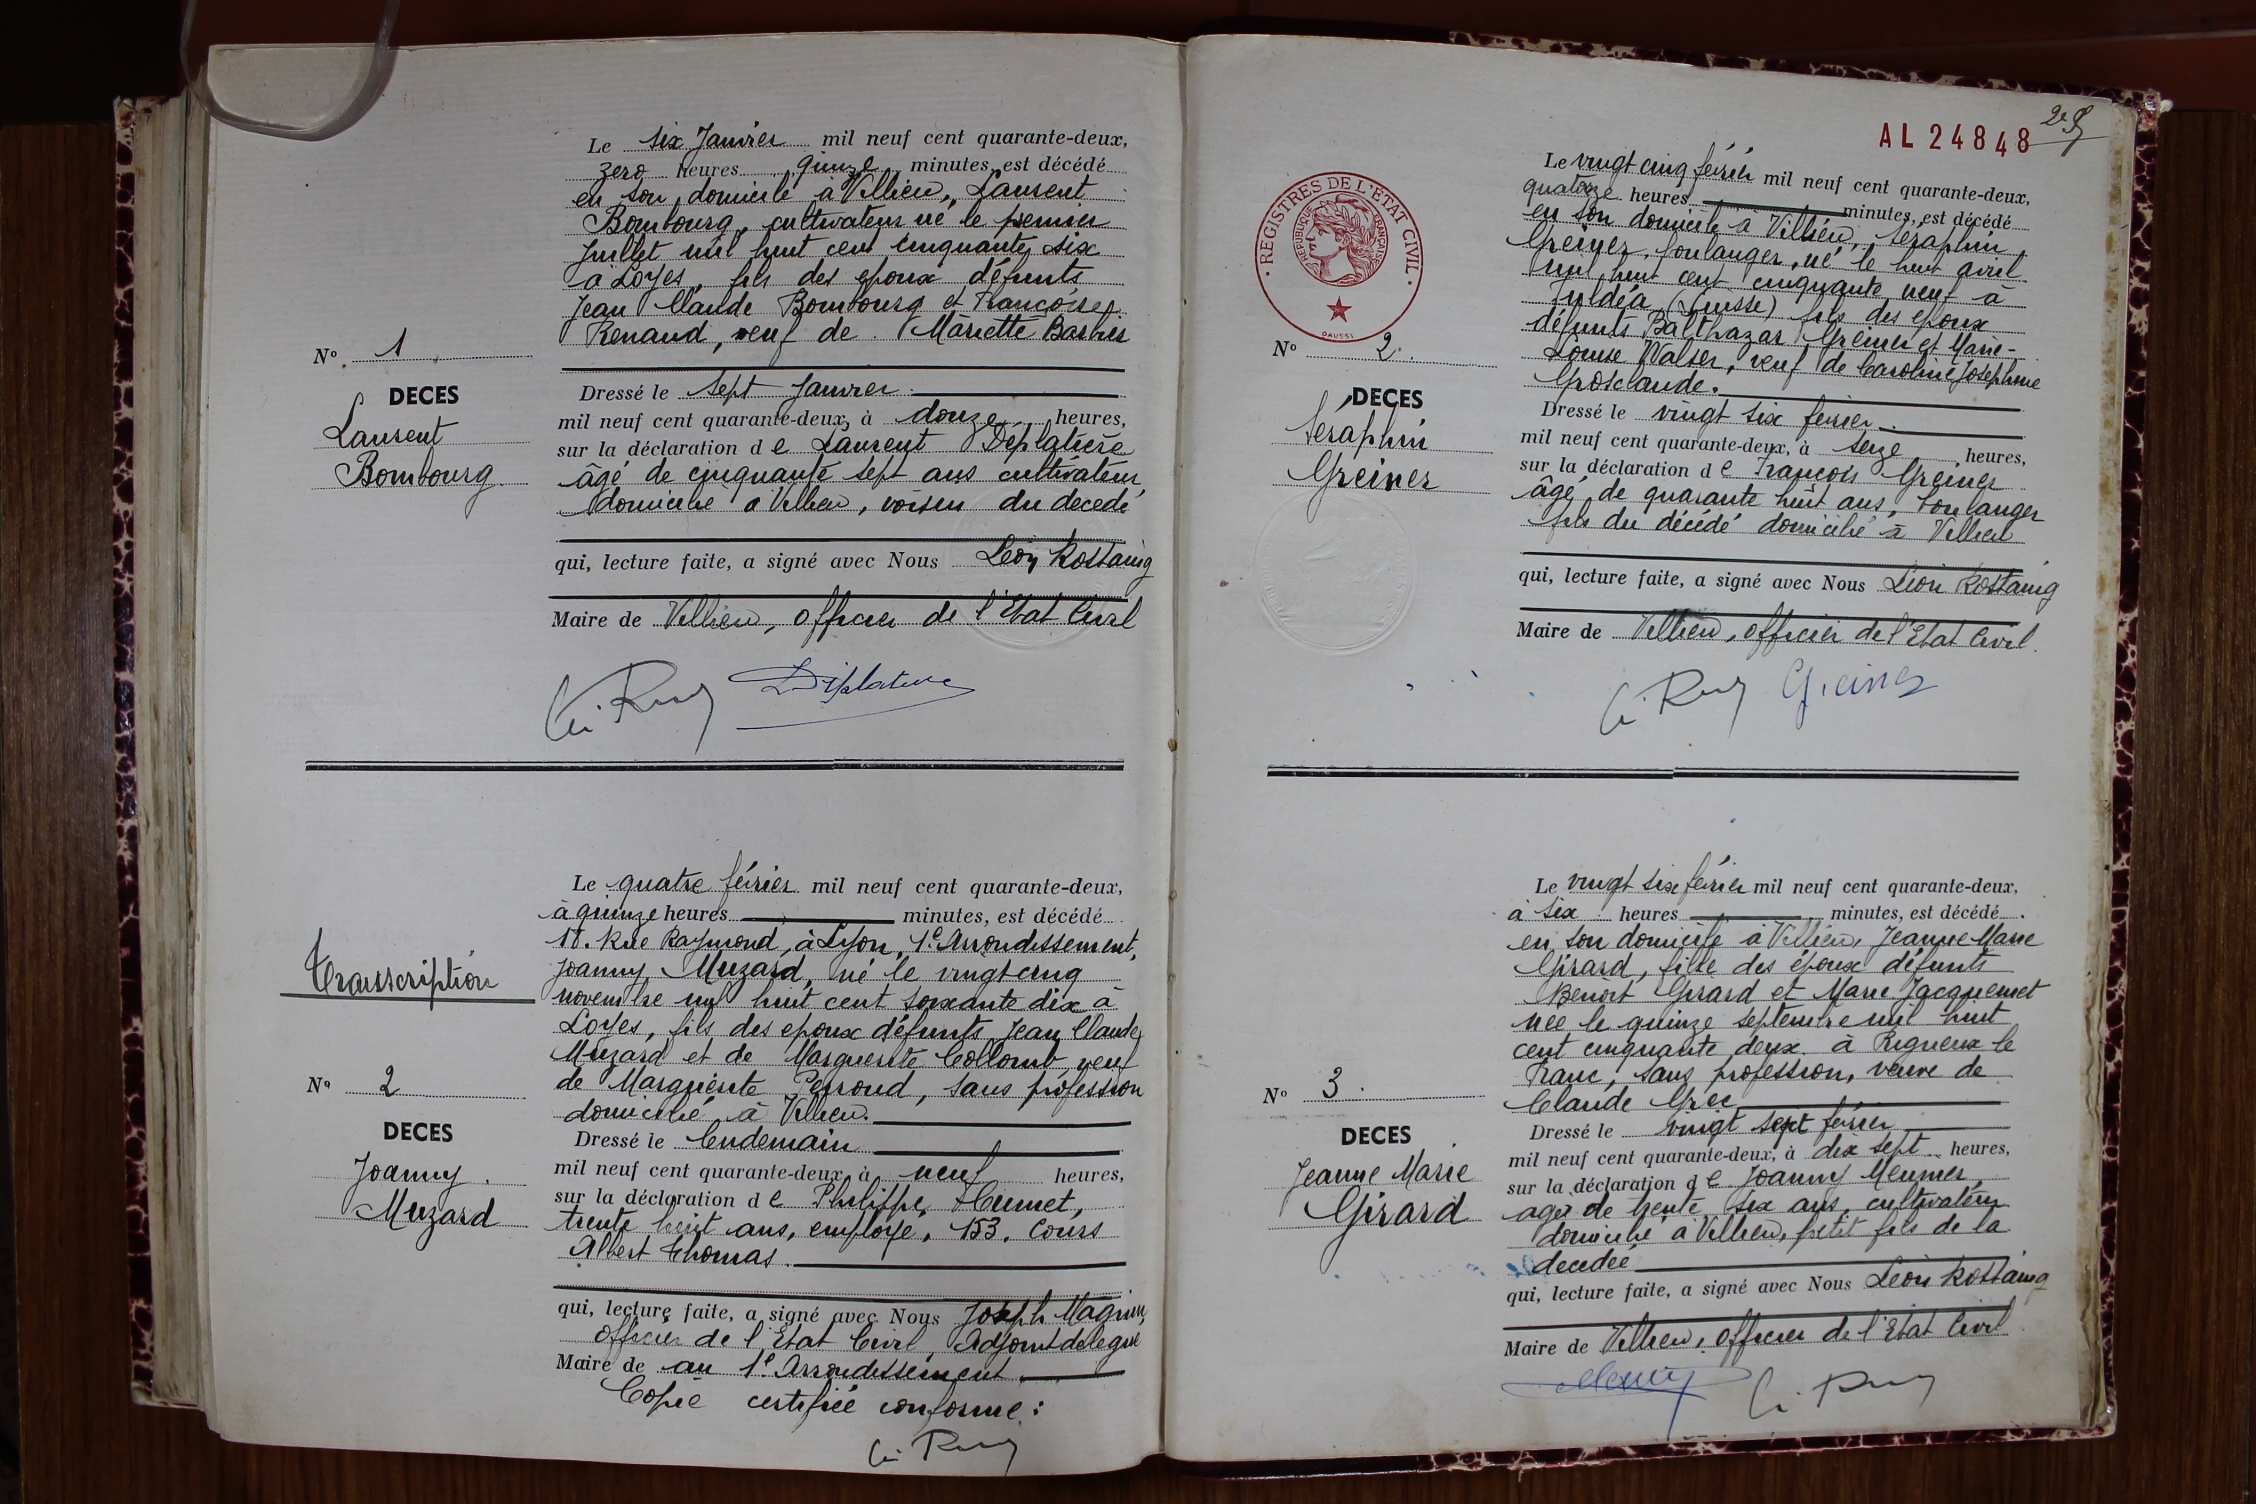 Le six Janvier mil neuf cent quarante-deux,
zero heures quinze minutes, est décédé
en son domicile à Villieu, Laurent
Bombourg, cultivateur né le premier
Juillet mil huit cent cinquante six
à Loyes, fils des epoux défunts
Jean Claude Bombourg et Françoise
Renaud, veuf de Mariette Barbier
Nº 1
DECES
Laurent
Bombourg
Dressé le sept Janvier
mil neuf cent quarante-deux, à douze heures,
sur la déclaration de Laurent Déplatière
âgé de cinquante sept ans cultivateur,
domicilié à Villieu, voisin du decedé
qui, lecture faite, a signé avec Nous Léon Rostaing
Maire de Villieu, officier de l'Etat Civil
Déplature
Transcription
Le quatre février mil neuf cent quarante-deux,
à quinze heures minutes, est décédé
18. Rue Raymond, à Lyon, 1e Arrondissement,
Joanny Muzard, né le vingt cinq
novembre mil huit cent soixante dix à
Loyes, fils des epoux défunts Jean Claude
Muzard et de Marguerite Collomb, veuf
de Marguerite Perroud, sans profession
domicilié à Villieu.
Nº 2
DECES
Joanny
Muzard
Dressé le lendemain
mil neuf cent quarante-deux, à neuf heures,
sur la déclaration de Philippe Humet,
trente huit ans, employé, 153, Cours
Albert Thomas.
qui, lecture faite, a signé avec Nous Joseph Magnin,
officier de l'Etat Civil, Adjoint délégué
Maire de au 1e Arrondissement
Copie certifiée conforme :
AL 24848
REGISTRES DE L'ETAT CIVIL
REPUBLIQUE FRANÇAISE
DAUSSI
Le vingt cinq février mil neuf cent quarante-deux,
quatorze heures minutes, est décédé
en son domicile à Villieu, Séraphin
Greiner, boulanger, né le huit avril
mil huit cent cinquante neuf à
(Suisse) fils des epoux
défunts Balthazar Greiner et Marie-
Louise Walser, veuf de Caroline Josephine
Grosclaude.
Nº 2
DECES
Séraphin
Greiner
Dressé le vingt six fevrier
mil neuf cent quarante-deux, à seize heures,
sur la déclaration de François Greiner
âgé de quarante huit ans, boulanger
fils du décédé domicilié à Villieu
qui, lecture faite, a signé avec Nous Léon Rostaing
Maire de Villieu, officier de l'Etat Civil.
Greiner
Le vingt six février mil neuf cent quarante-deux,
à six heures minutes, est décédé
en son domicile à Villieu, Jeanne Marie
Girard, fille des époux défunts
Benoit Girard et Marie Jacquemet
née le quinze septembre mil huit
cent cinquante deux à Rigneux le
Franc, sans profession, veuve de
Claude Grec
Nº 3
DECES
Jeanne Marie
Girard
Dressé le vingt sept février
mil neuf cent quarante-deux, à dix sept heures,
sur la déclaration de Joanny Meunier
agé de trente six ans, cultivateur
domicilié à Villieu, petit fils de la
decedée
qui, lecture faite, a signé avec Nous Léon Rostaing
Maire de Villieu, officier de l'Etat Civil